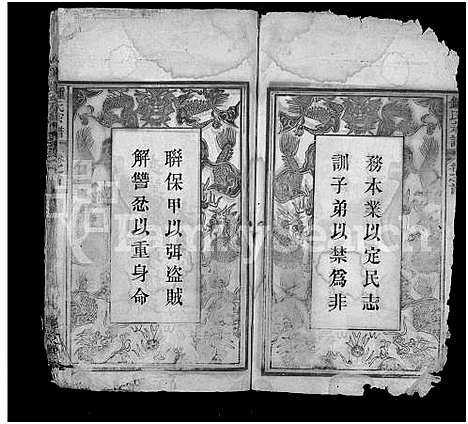 務本業以定民志
訓子弟以禁為非
聯保甲以弭盜賊
解讐忿以重身命
FamilySearch